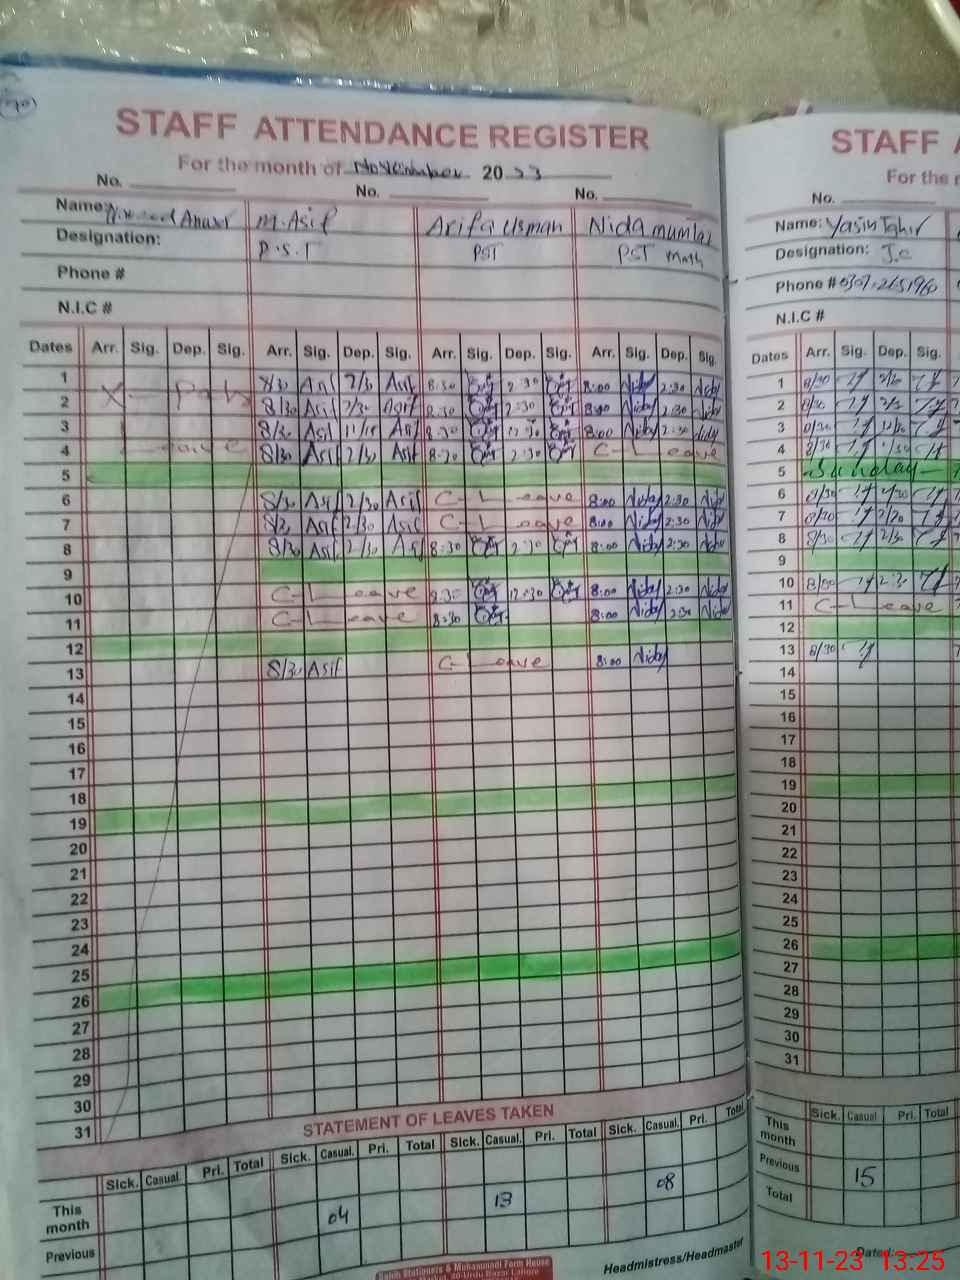 STAFF ATTENDANCE REGISTER
For the month of November 2023
No. No. No.
Name: Anwar M. Asif Arifa Usman Nida mumtaz
Designation: P.S.T PST PST Math
Phone #
N.I.C #
Dates Arr. Sig. Dep. Sig. Arr. Sig. Dep. Sig. Arr. Sig. Dep. Sig. Arr. Sig. Dep. Sig.
1 8/30 Asif 2/30 Asif 8:30 2:30 8:00 Nida 2:30 Nida
2 8/30 Asif 2/30 Asif 8:30 2:30 8:00 Nida 2:30 Nida
3 8/30 Asif Asif 8:30 12:30 8:00 Nida 2:30 Nida
4 Leave 8/30 Asif 2/30 Asif 8:30 2:30 C-Leave
5
6 8/30 Asif 2/30 Asif C-Leave 8:00 Nida 2:30 Nida
7 8/30 Asif 2/30 Asif C-Leave 8:00 Nida 2:30 Nida
8 8/30 Asif 2/30 Asif 8:30 2:30 8:00 Nida 2:30 Nida
9
10 C-Leave 8:30 12:30 8:00 Nida 2:30 Nida
11 C-Leave 8:30 8:00 Nida 2:30 Nida
12
13 8/30 Asif C-Leave 8:00 Nida
14
15
16
17
18
19
20
21
22
23
24
25
26
27
28
29
30
31
STATEMENT OF LEAVES TAKEN
Sick. Casual. Pri. Total Sick. Casual. Pri. Total Sick. Casual. Pri. Total Sick. Casual. Pri. Total
This month
Previous 04 13 08
Headmistress/Headmaster
STAFF
For the
No.
Name: Yasin Tahir
Designation: J.C
Phone # 0307-2651960
N.I.C #
Dates Arr. Sig. Dep. Sig.
1 8/30 2/30
2 8/30 2/30
3 8/30
4 8/30
5 Sunday
6 8/30 2/30
7 8/30 2/30
8 8/30 2/30
9
10 8/30 2:30
11 C-Leave
12
13 8/30
14
15
16
17
18
19
20
21
22
23
24
25
26
27
28
29
30
31
Sick. Casual. Pri. Total
This month
Previous 15
Total
Dated:
13-11-23 13:25